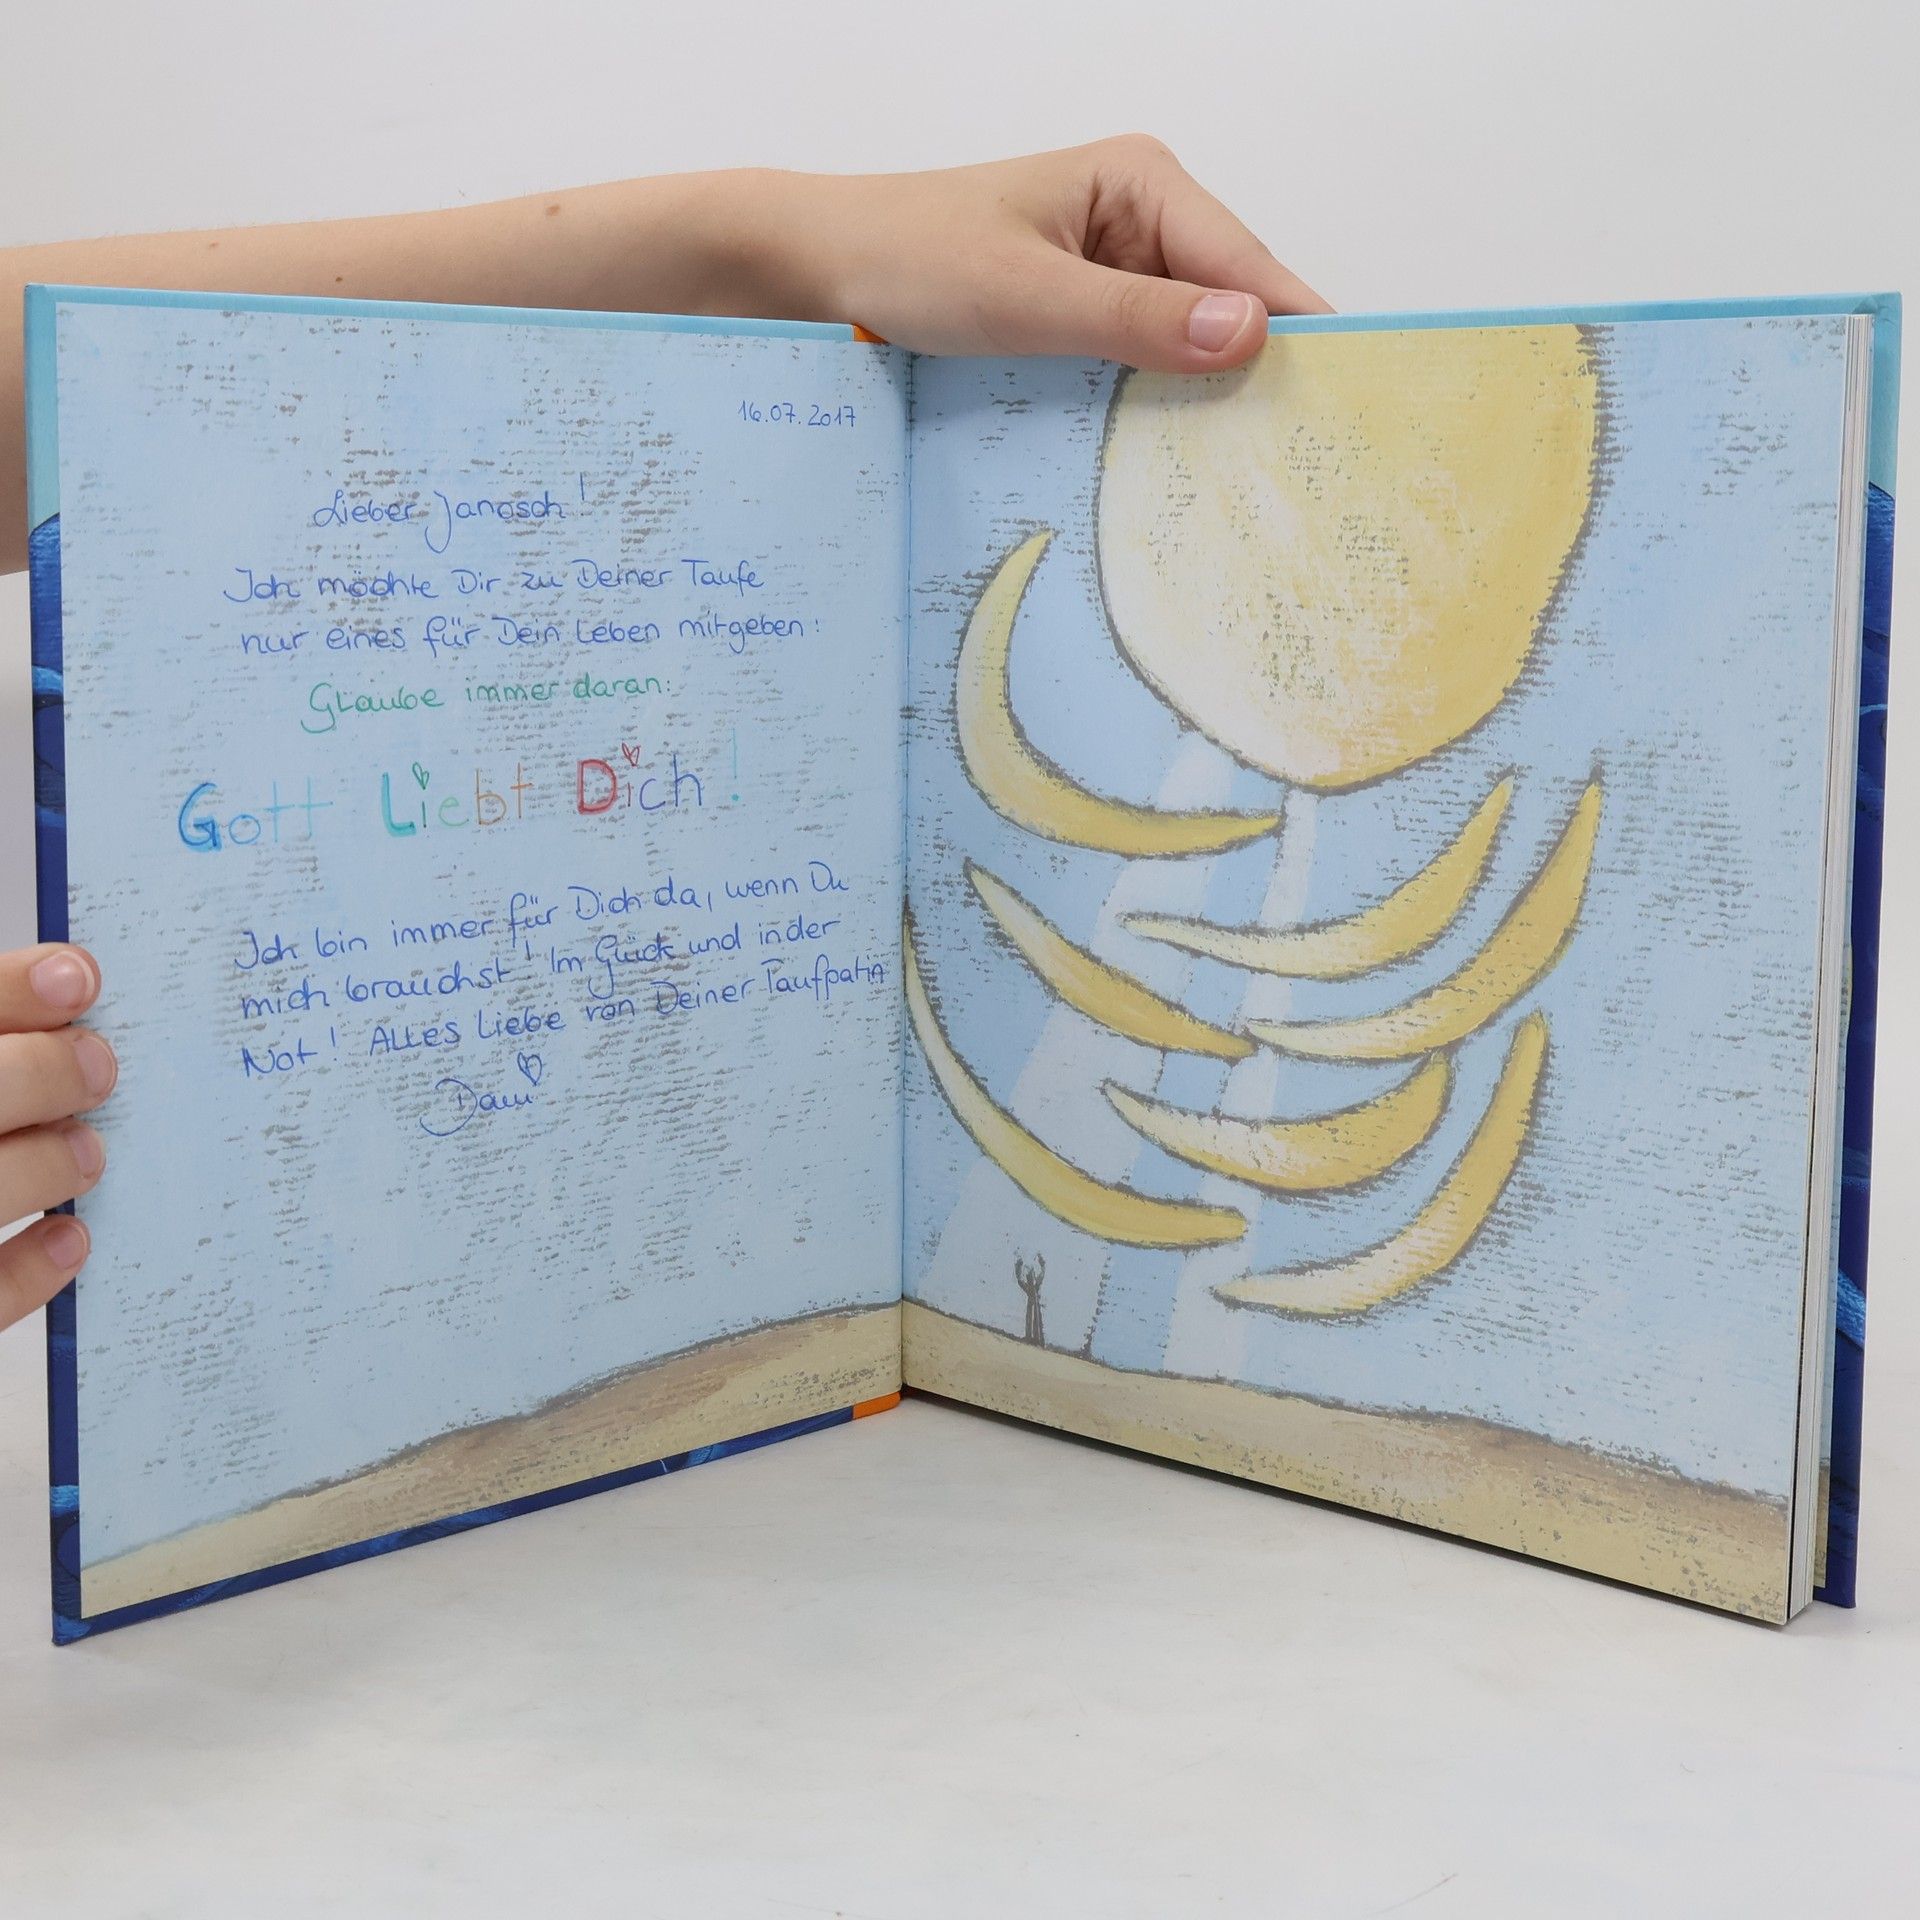 16.07.2017
Lieber Janosch!
Ich möchte Dir zu Deiner Taufe
nur eines für Dein Leben mitgeben:
Glaube immer daran:
Gott Liebt Dich!
Ich bin immer für Dich da, wenn Du
mich brauchst! Im Glück und in der
Not! Alles Liebe von Deiner Taufpatin
Dani